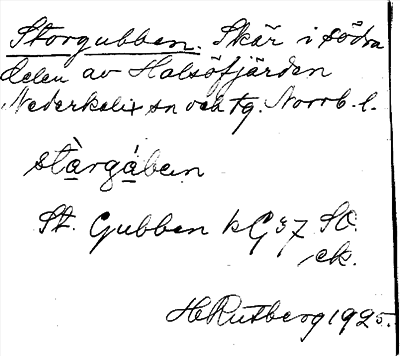 Storgubben. Skär i södra
delen av Halsöfjärden
Nederkalix sn och tg. Norrb. l.
stàrgábän
St. Gubben kG 37 SO.
ek.
H Rutberg 1925.